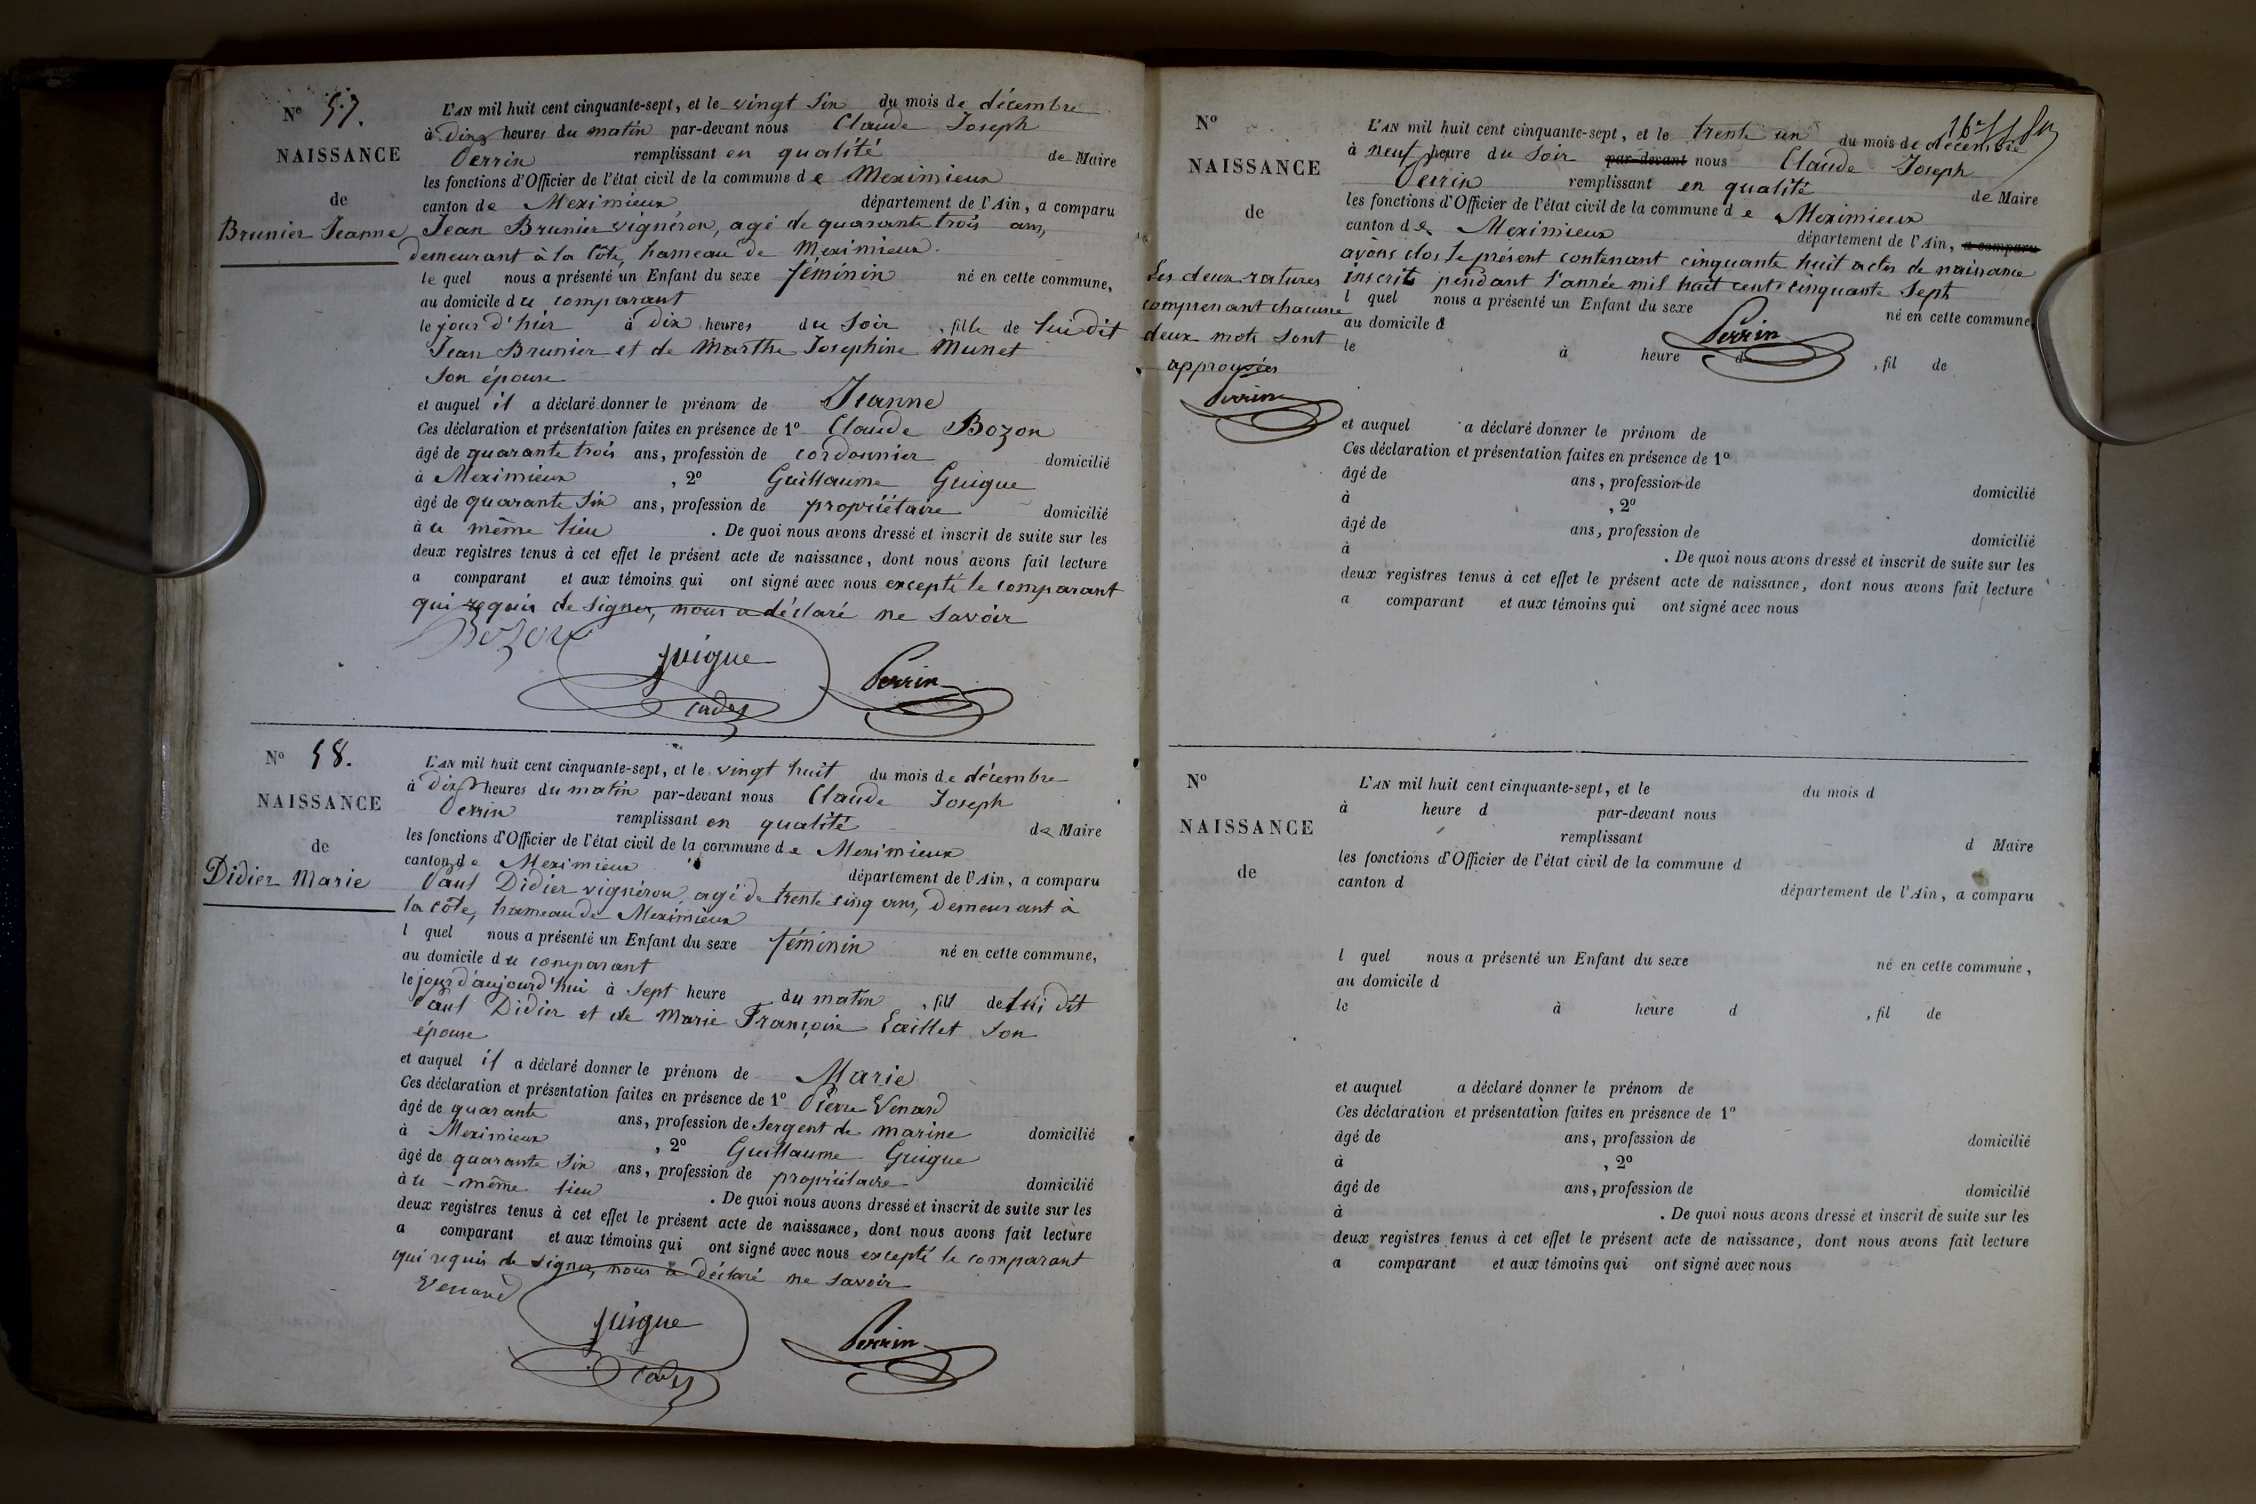 N° 57.
NAISSANCE
de
Brunier Jeanne
L'AN mil huit cent cinquante-sept, et le vingt six du mois de décembre
à dix heures du matin par-devant nous Claude Joseph
Perrin remplissant en qualité de Maire
les fonctions d'Officier de l'état civil de la commune de Meximieux
canton de Meximieux département de l'Ain, a comparu
Jean Brunier vignéron, agé de quarante trois ans,
demeurant à la Côte, hameau de Meximieux.
le quel nous a présenté un Enfant du sexe féminin né en cette commune,
au domicile du comparant
le jour d'hier à dix heures du soir, fille de lui dit
Jean Brunier et de Marthe Josephine Munet
son épouse
et auquel il a déclaré donner le prénom de Jeanne
Ces déclaration et présentation faites en présence de 1° Claude Bozon
âgé de quarante trois ans, profession de cordonnier domicilié
à Meximieux, 2° Guillaume Guigue
âgé de quarante six ans, profession de propriétaire domicilié
au même lieu. De quoi nous avons dressé et inscrit de suite sur les
deux registres tenus à cet effet le présent acte de naissance, dont nous avons fait lecture
a comparant et aux témoins qui ont signé avec nous excepté le comparant
qui requis de signer, nous a déclaré ne savoir
Bozon
guigue
Perrin
N° 58.
NAISSANCE
de
Didier Marie
L'AN mil huit cent cinquante-sept, et le vingt huit du mois de décembre
à dix heures du matin par-devant nous Claude Joseph
Perrin remplissant en qualité de Maire
les fonctions d'Officier de l'état civil de la commune de Meximieux
canton de Meximieux département de l'Ain, a comparu
Paul Didier vignéron, agé de trente cinq ans, demeurant à
la côte, hameau de Meximieux
l quel nous a présenté un Enfant du sexe féminin né en cette commune,
au domicile du comparant
le jour d'aujourd'hui à sept heure du matin, fill de lui dit
Paul Didier et de Marie Françoise son
épouse
et auquel il a déclaré donner le prénom de Marie
Ces déclaration et présentation faites en présence de 1° Pierre Venard
âgé de quarante ans, profession de sergent de marine domicilié
à Meximieux, 2° Guillaume Guigue
âgé de quarante six ans, profession de propriétaire domicilié
au même lieu. De quoi nous avons dressé et inscrit de suite sur les
deux registres tenus à cet effet le présent acte de naissance, dont nous avons fait lecture
a comparant et aux témoins qui ont signé avec nous excepté le comparant
qui requis de signer, nous a déclaré ne savoir
Venard
guigue
Perrin
N°
NAISSANCE
de
L'AN mil huit cent cinquante-sept, et le trente un du mois de décembre
à neuf heure du soir par-devant nous Claude Joseph
Perrin remplissant en qualité de Maire
les fonctions d'Officier de l'état civil de la commune de Meximieux
canton de Meximieux département de l'Ain, a comparu
avons clos le présent contenant cinquante huit actes de naissance
inscrits pendant l'année mil huit cent cinquante sept
l quel nous a présenté un Enfant du sexe né en cette commune,
au domicile d
Perrin
le à heure d, fil de
Les deux ratures
comprenant chacune
deux mots sont
approuvées
Perrin
et auquel a déclaré donner le prénom de
Ces déclaration et présentation faites en présence de 1°
âgé de ans, profession de domicilié
à, 2°
âgé de ans, profession de domicilié
à. De quoi nous avons dressé et inscrit de suite sur les
deux registres tenus à cet effet le présent acte de naissance, dont nous avons fait lecture
a comparant et aux témoins qui ont signé avec nous
N°
NAISSANCE
de
L'AN mil huit cent cinquante-sept, et le du mois d
à heure d par-devant nous
remplissant d Maire
les fonctions d'Officier de l'état civil de la commune d
canton d département de l'Ain, a comparu
l quel nous a présenté un Enfant du sexe né en cette commune,
au domicile d
le à heure d, fil de
et auquel a déclaré donner le prénom de
Ces déclaration et présentation faites en présence de 1°
âgé de ans, profession de domicilié
à, 2°
âgé de ans, profession de domicilié
à. De quoi nous avons dressé et inscrit de suite sur les
deux registres tenus à cet effet le présent acte de naissance, dont nous avons fait lecture
a comparant et aux témoins qui ont signé avec nous